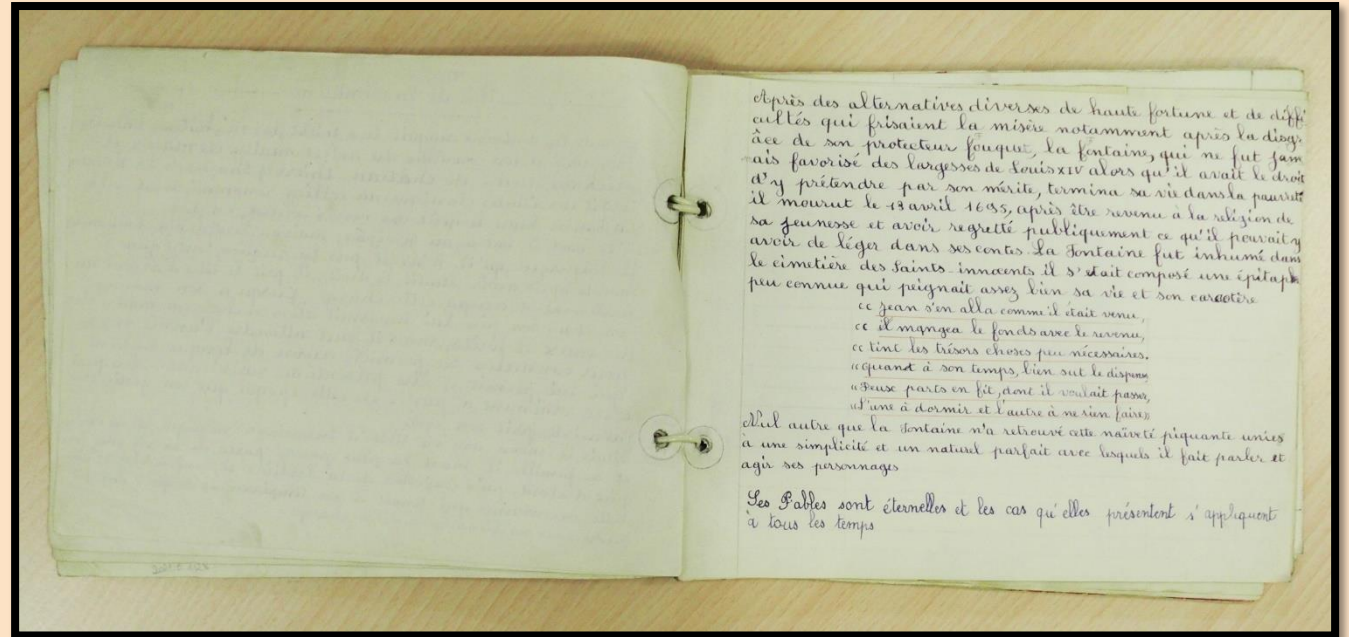 Après des alternatives diverses de haute fortune et de diffi
cultés qui frisaient la misère notamment après la disgr
âce de son protecteur fouquet, la fontaine, qui ne fut jam
ais favorisé des largesses de Louis XIV alors qu'il avait le droit
d'y prétendre par son mérite, termina sa vie dans la pauvreté
il mourut le 13 avril 1695, après être revenu à la religion de
sa jeunesse et avoir regretté publiquement ce qu'il pouvait y
avoir de léger dans ses contes. La Fontaine fut inhumé dans
le cimetière des Saints-innocents il s'était composé une épitaphe
peu connue qui peignait assez bien sa vie et son caractère
"jean s'en alla comme il était venu,
"il mangea le fonds avec le revenu,
"tint les trésors choses peu nécessaires.
"quand à son temps, bien sut le dispenser
"Deux parts en fit, dont il voulait passer,
"L'une à dormir et l'autre à ne rien faire»
Nul autre que la Fontaine n'a retrouvé cette naïveté piquante unies
à une simplicité et un naturel parfait avec lesquels il fait parler et
agir ses personnages
Ses Fables sont éternelles et les cas qu'elles présentent s'appliquent
à tous les temps